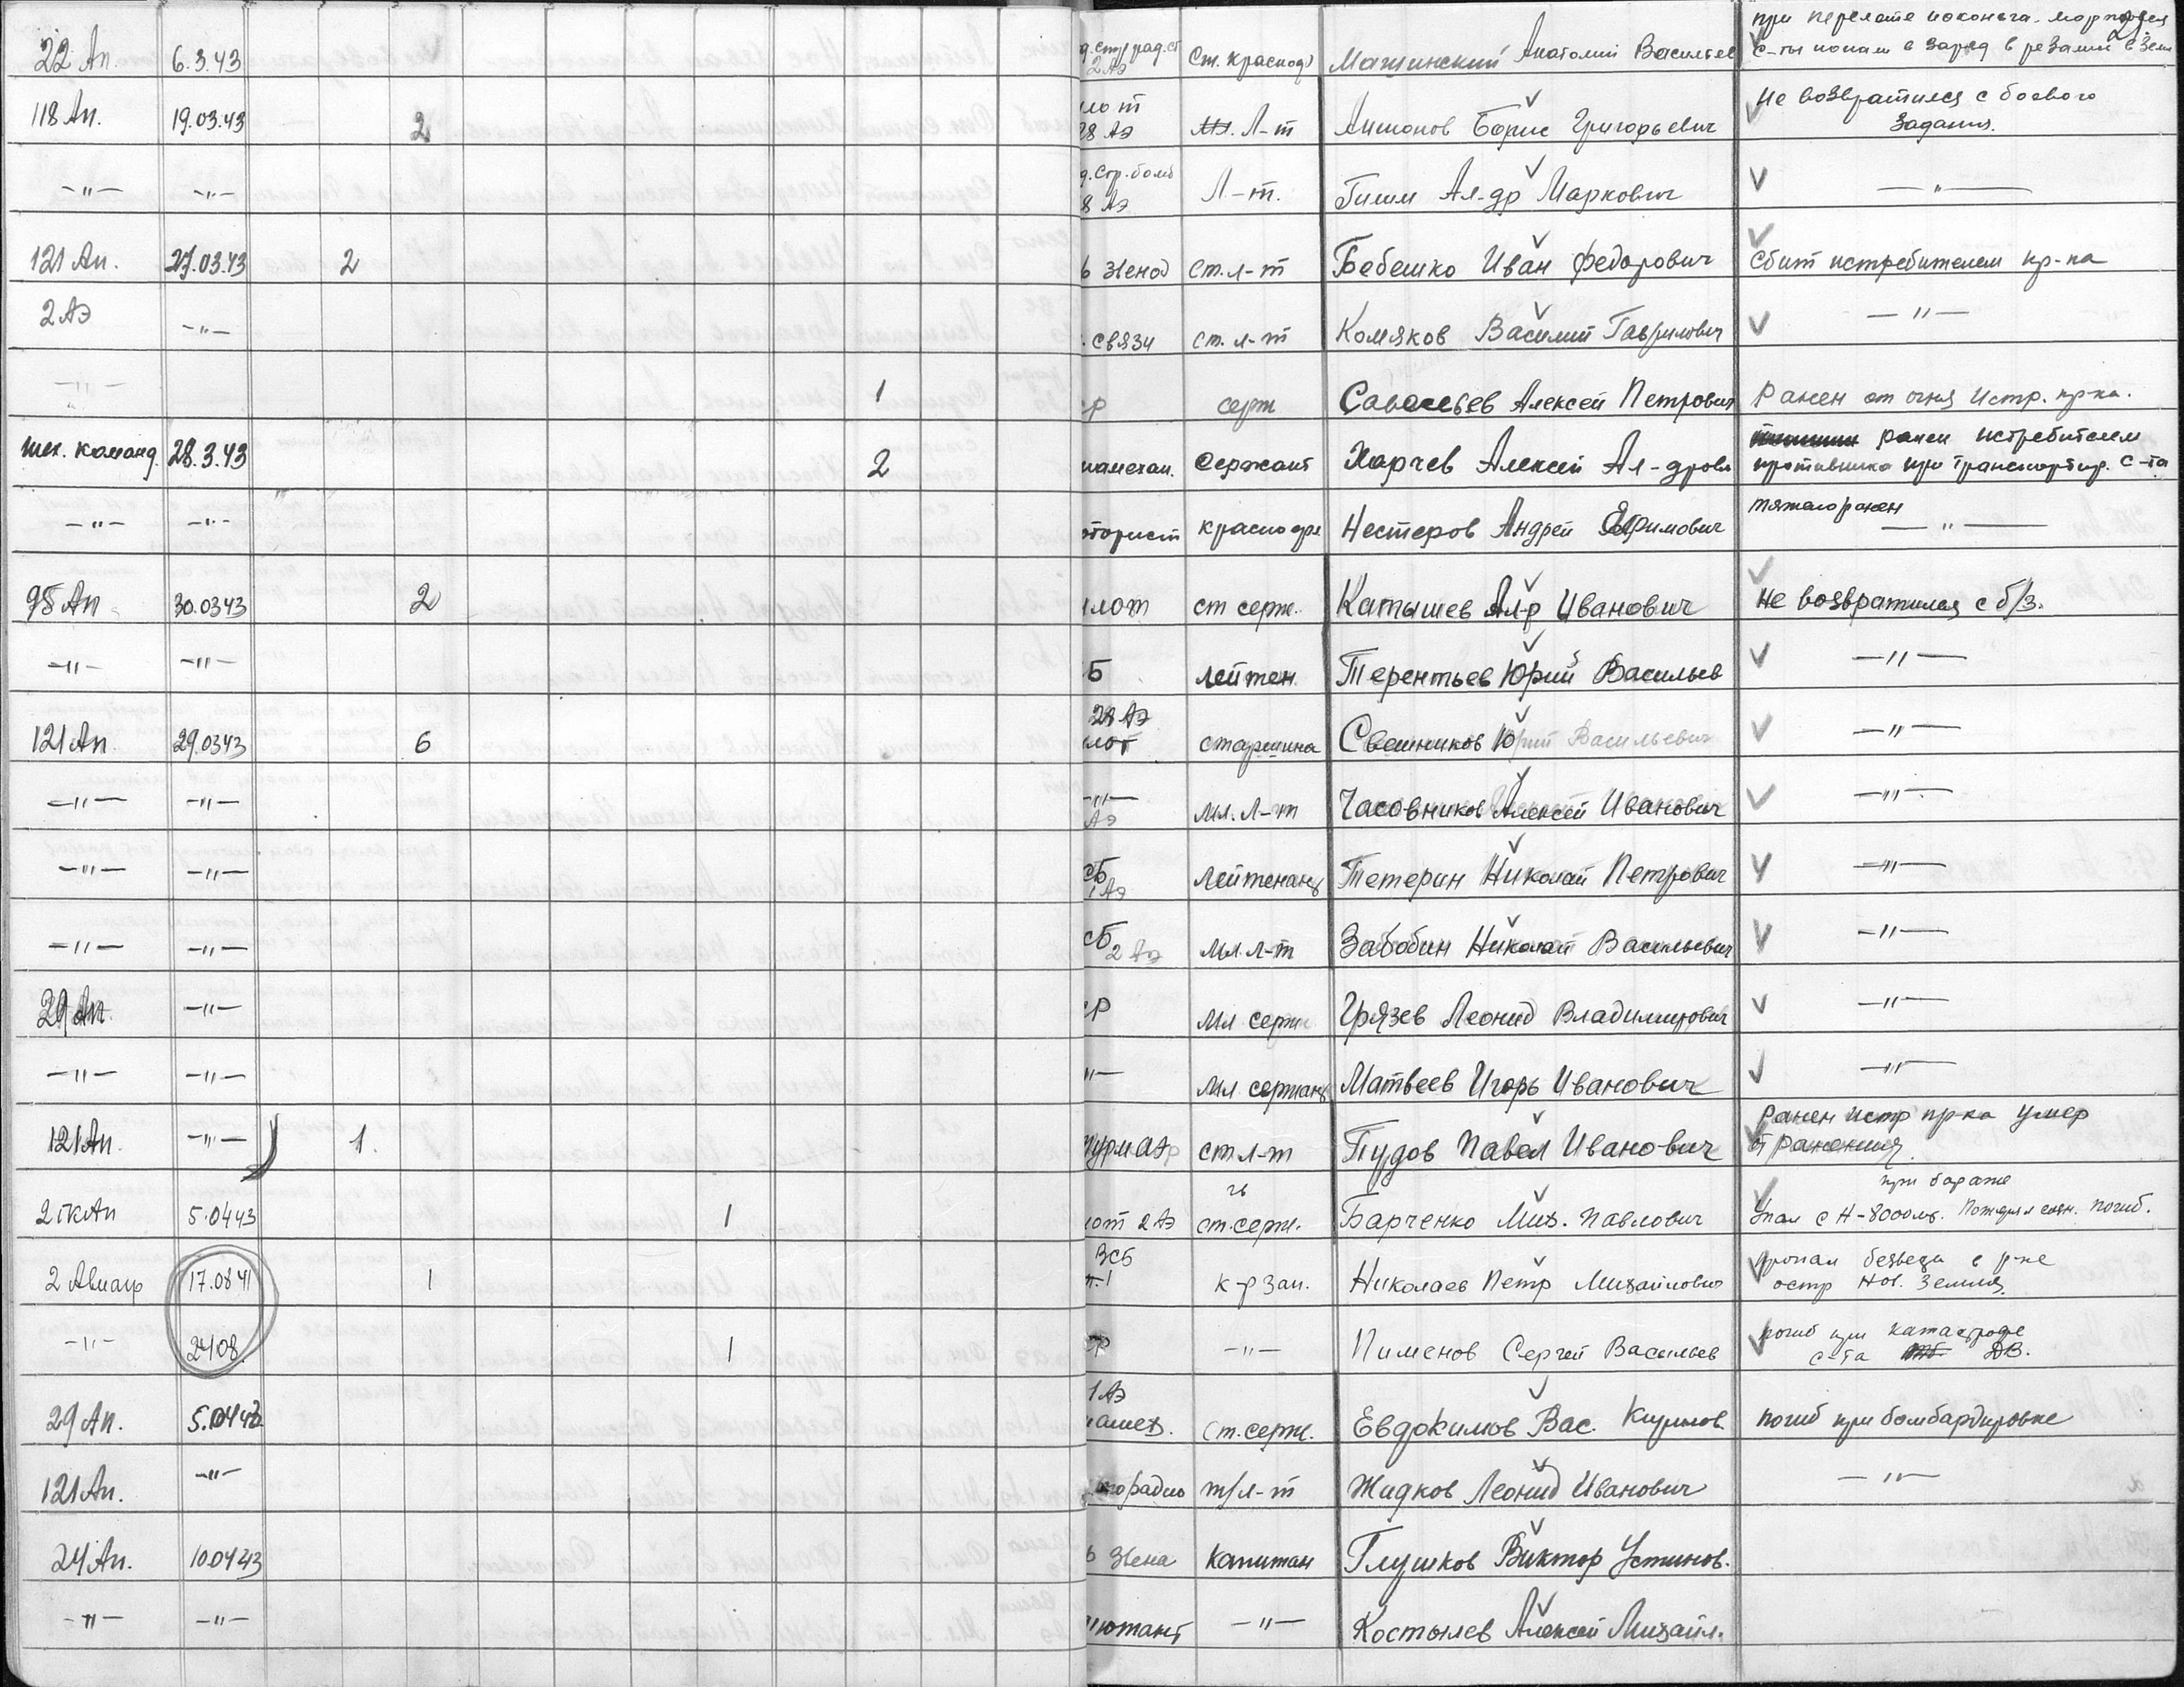 22 Ап. 6.3.43 Ст. краснод) Мащинский Анатолий Васильев
при перелете
118 Ап. 19.03.43 2 28 АЭ Мл. Л-т Антонов Борис Григорьевич Не возвратился с боевого
задания.
-"- -"- 8 АЭ Л-т. Гишм Ал-др Маркович -"-
121 Ап. 27.03.43 2 звенод Ст. л-т Бебешко Иван Федорович Сбит истребителем пр-ка
2 АЭ -"- связи ст. л-т Комяков Василий Гаврилович -"-
-"- 1 р серж Савосьев Алексей Петрович Ранен от огня истр. пр-ка.
тех. команд. 28.3.43 2 Сержант Харчев Алексей Ал-дрови ранен истребителем
противника при транспортир. с-та
-"- -"- оторист краснофл Нестеров Андрей Ефимович тяжело ранен -"-
95 Ап 30.0343 2 илот ст серж. Катышев Ал-р Иванович Не возвратился с б/з.
-"- -"- Б лейтен. Терентьев Юрий Васильев -"-
121 Ап. 29.0343 6 2й АЭ
лот старшина Свешников Юрий Васильевич -"-
-"- -"- -"-
АЭ мл. л-т Часовников Алексей Иванович -"-
-"- -"- сБ
1 АЭ Лейтенант Тетерин Николай Петрович -"-
-"- -"- сБ 2 АЭ мл. л-т Забобин Николай Васильевич -"-
29 Ап. -"- р Мл серж Грязев Леонид Владимирович -"-
-"- -"- "- Мл сержант Матвеев Игорь Иванович -"-
121 Ап. -"- 1. ст л-т Пудов Павел Иванович Ранен истр пр-ка умер
от ранения.
2 ГКАп 5.0443 1 от 2 АЭ гв
ст. серж. Барченко Мих. Павлович при бараже
Упал с Н-8000м. Потерял созн. погиб.
2 Авиагр 17.0841 1 ВСБ к-р зап. Николаев Петр Михайлович пропал безвести в р-не
остр Нов. Земля.
-"- 24.08. 1 -"- Пименов Сергей Васильев погиб при катастрофе
с-та ДВ.
29 Ап. 5.0443 1 АЭ
амех. Ст. серж. Евдокимов Вас. Кирилов. погиб при бомбардировке
121 Ап. -"- орадио т/л-т Жидков Леонид Иванович -"-
24 Ап. 100443 звена капитан Глушков Виктор Устинов.
-"- -"- ютант -"- Костылев Алексей Михайл.